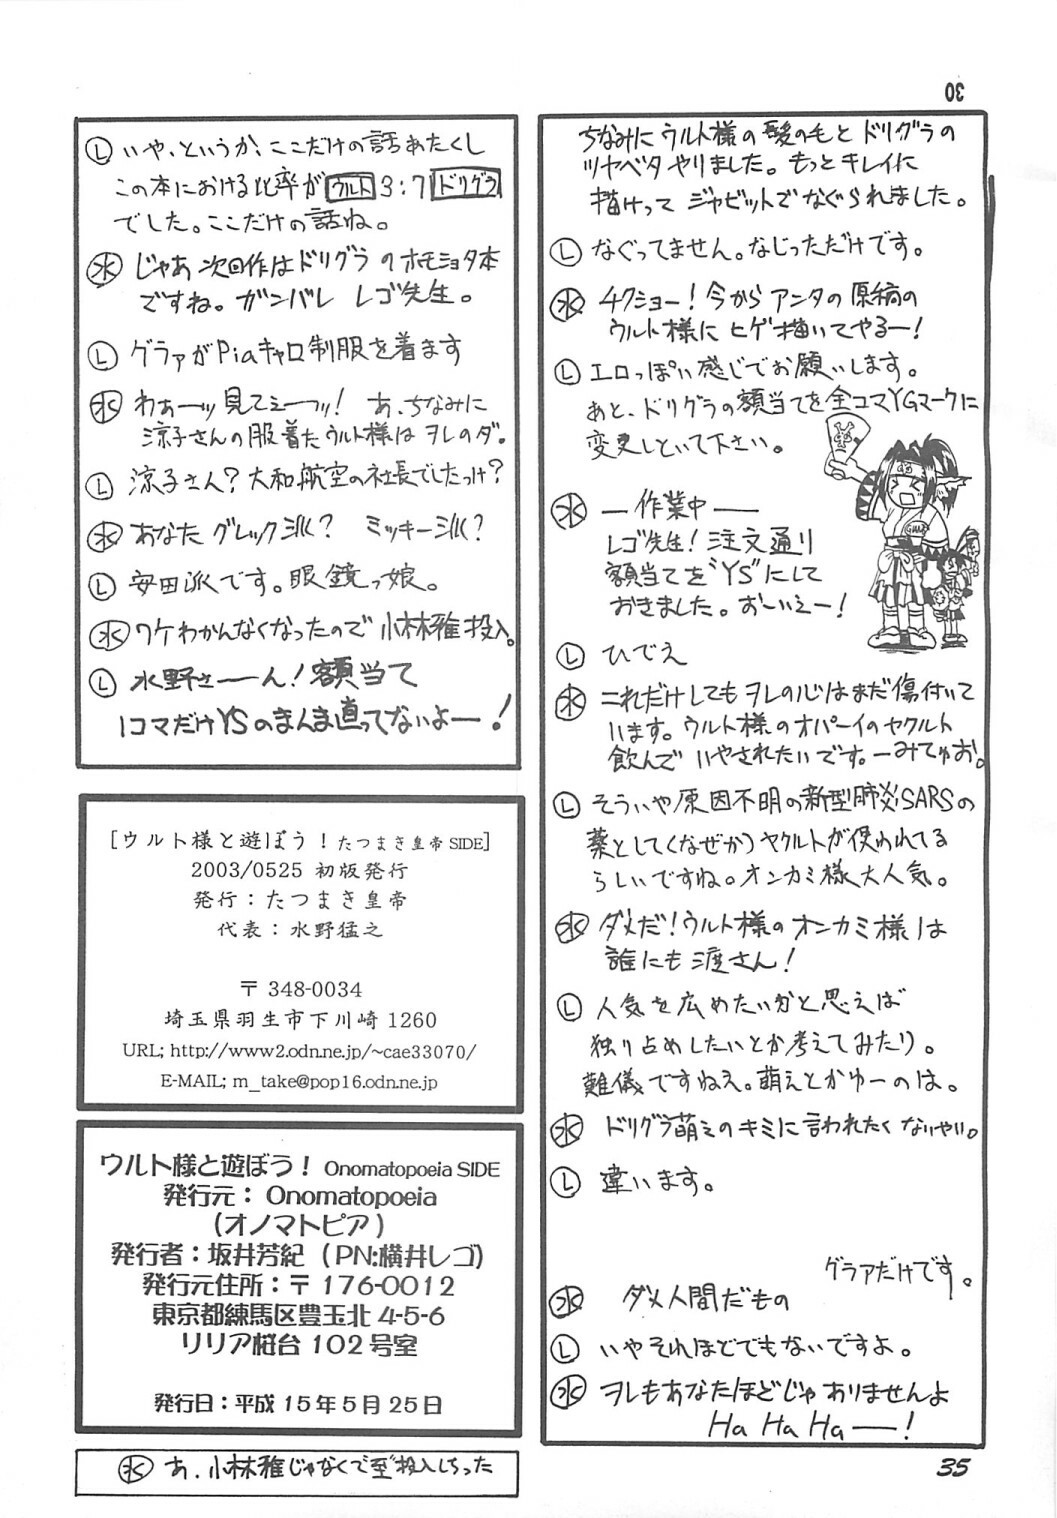 30
ちなみにウルト様の髪の毛とドリグラの
ツヤベタやりました。もっとキレイに
描けって ジャビットでなぐられました。
Ⓛ なぐってません。なじっただけです。
㊌ チクショー！今からアンタの原稿の
ウルト様にヒゲ描いてやるー！
Ⓛ エロっぽい感じでお願いします。
あと、ドリグラの額当てを全コマYGマークに
変更しといて下さい。
㊌ ―作業中―
レゴ先生！注文通り
額当てを"YS"にして
おきました。おーいえー！
Ⓛ ひでえ
㊌ これだけしてもヲレの心はまだ傷付いて
います。ウルト様のオパーイのヤクルト
飲んでいやされたいです。―みてゅお。
Ⓛ そういや原因不明の新型肺炎SARSの
薬として(なぜか)ヤクルトが使われてる
らしいですね。オンカミ様大人気。
㊌ ダメだ！ウルト様のオンカミ様は
誰にも渡さん！
Ⓛ 人気を広めたいかと思えば
独り占めしたいとか考えてみたり。
難儀ですねえ。萌えとかゆーのは。
㊌ ドリグラ萌えのキミに言われたくないやい。
Ⓛ 違います。
グラァだけです。
㊌ ダメ人間だもの
Ⓛ いやそれほどでもないですよ。
㊌ ヲレもあなたほどじゃありませんよ
Ha Ha Ha―！
35
Ⓛ いや、というか、ここだけの話あたくし
この本における比率がウルト3:7ドリグラ
でした。ここだけの話ね。
㊌ じゃあ次回作はドリグラのホモショタ本
ですね。ガンバレ レゴ先生。
Ⓛ グラァがPiaキャロ制服を着ます
㊌ わぁーッ見てぇーッ！ あ、ちなみに
涼子さんの服着たウルト様はヲレのダ。
Ⓛ 涼子さん？大和航空の社長でしたっけ？
㊌ あなたグレック派？ ミッキー派？
Ⓛ 安田派です。眼鏡っ娘。
㊌ ワケわかんなくなったので小林雅投入。
Ⓛ 水野さーん！額当て
1コマだけYSのまんま直ってないよー！
[ウルト様と遊ぼう！たつまき皇帝SIDE]
2003/0525 初版発行
発行：たつまき皇帝
代表：水野猛之
〒348-0034
埼玉県羽生市下川崎1260
URL; http://www2.odn.ne.jp/~cae33070/
E-MAIL; m_take@pop16.odn.ne.jp
ウルト様と遊ぼう！ Onomatopoeia SIDE
発行元：Onomatopoeia
(オノマトピア)
発行者：坂井芳紀（PN:横井レゴ）
発行元住所：〒176-0012
東京都練馬区豊玉北4-5-6
リリア桜台102号室
発行日：平成15年5月25日
㊌ あ、小林雅じゃなくて至投入しちった